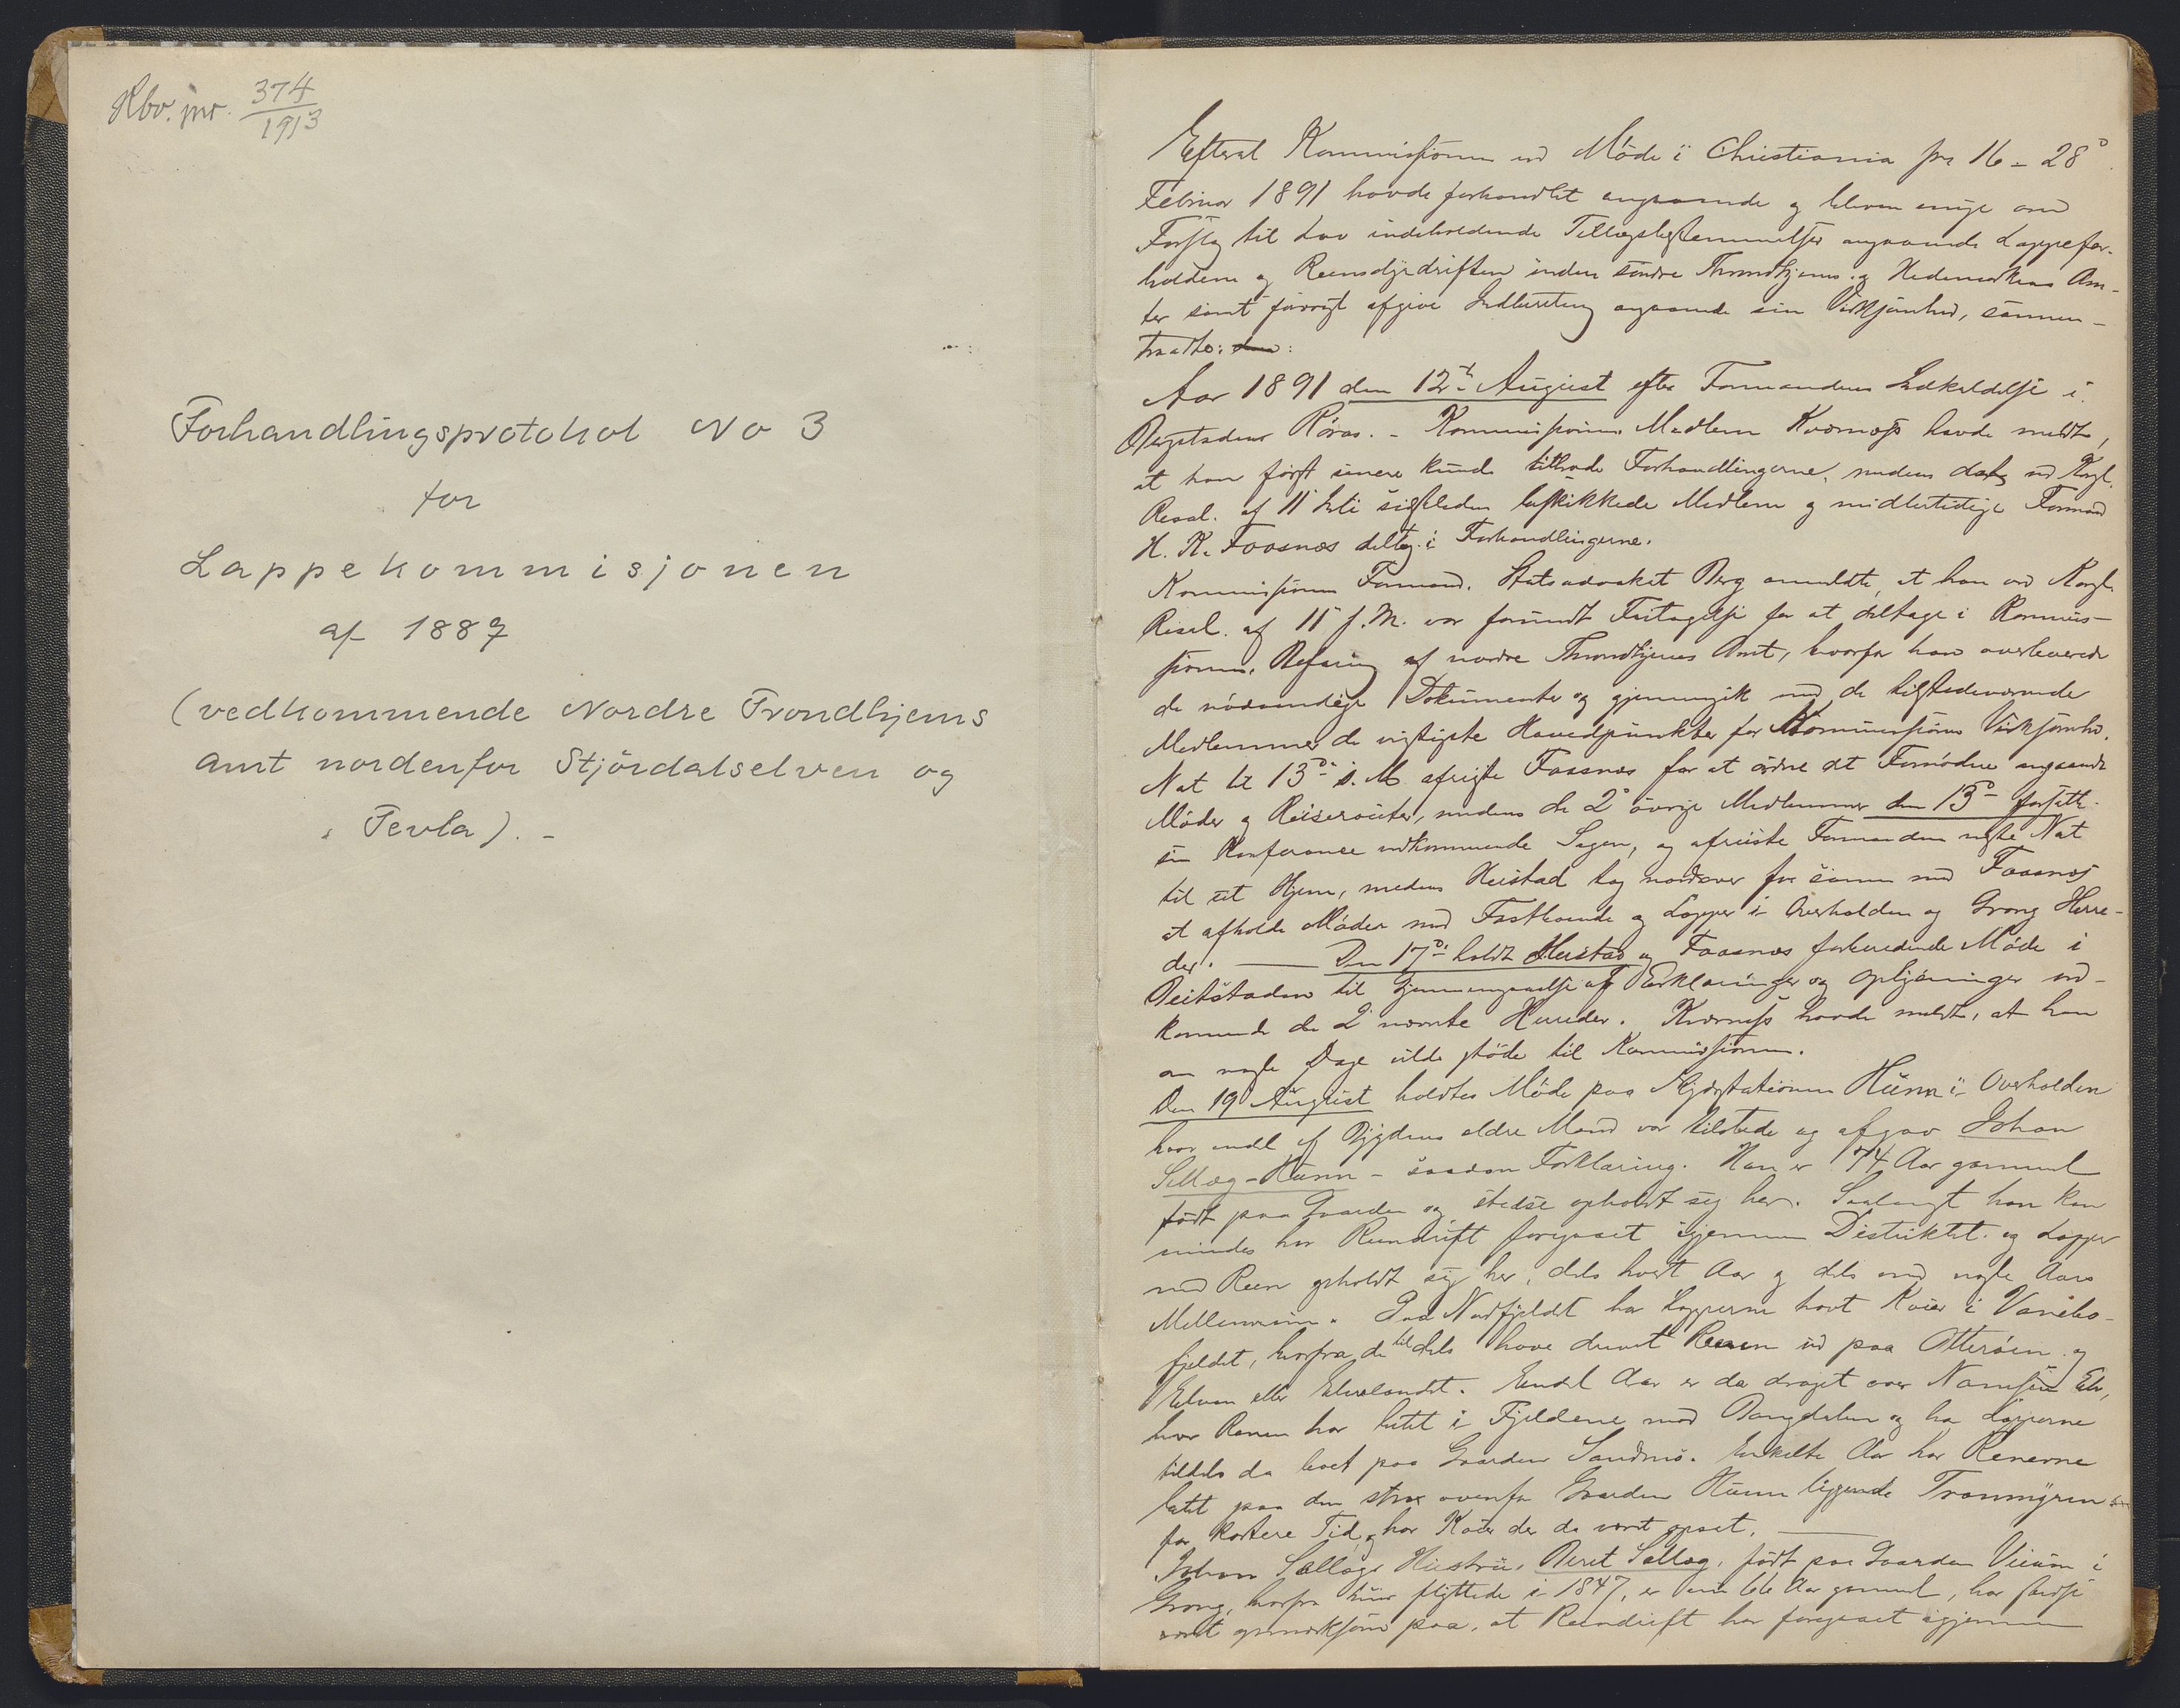 Rbv. nr. 374/1913
Forhandlingsprotokol No 3
for
Lappekommisjonen
af 1887
(vedkommende Nordre Trondhjems
amt nordenfor Stjördalselven og
Tevla). -
Efterat Kommissionen ved Möde i Christiania fra 16 - 28
Februar 1891 havde forhandlet angaaende og bleven enige om
Forslag til Lov indeholdende Tillægsbestemmelser angaaende Lappefor-
holdene og Reensdyrdriften inden söndre Throndhjems og Hedemarkens Am-
ter samt forövrigt afgive Indberetning angaaende sin Virksomhed, sammen-
traadte:
Aar 1891 den 12te August efter Formandens Indkaldelse i
Bergstaden Röros. - Kommissionens Medlem Kværnæss havde meldt,
at han först senere kunde tiltræde Forhandlingerne, medens det ved Kgl.
Resol. af 11 Juli sidstleden beskikkede Medlem og midlertidige Formand
H. K. Foosnæs deltog i Forhandlingerne.
Kommissionens Formand, Statsadvokat Berg anmeldte, at han ved Kongl.
Resol. af 11 f. M. var forundt Fritagelse for at deltage i Kommis-
sionens Befaring af nordre Throndhjems Amt, hvorfor han overleverede
de nödvendige Dokumenter og gjennemgik med de tilstedeværende
Medlemmer de vigtigste Hovedpunkter for Kommissionens Virksomhed.
Nat til 13de d. M. afreiste Foosnæs for at ordne det Fornödne angaaende
Möder og Reiserouter, medens de 2de övrige Medlemmer den 13de fortsatte
sin Konferance vedkommende Sagen, og afreiste Formanden næste Nat
til sit Hjem, medens Heistad tog nordover for sammen med Foosnæs
at afholde Möder med Fastboende og Lapper i Overhalden og Grong Herre-
der. — Den 17de holdt Heistad og Foosnæs forberedende Möde i
Beitstaden til Gjennemgaaelse af Erklæringer og Oplysninger ved-
kommende de 2 nævnte Herreder. Kværnæss havde meldt, at han
om nogle Dage vilde støde til Kommissionen.
Den 19 August holdtes Möde paa Skydsstationen Hunn i Overhalden
hvor endel af Bygdens ældre Mænd var tilstede og afgav Johan
Sellæg-Hunn - saadan Forklaring. Han er 74 Aar gammel
født paa Gaarden og stedse opholdt sig her. Saalangt han kan
mindes har Rendrift foregaaet igjennem Distriktet og Lapper
med Reen opholdt sig her, dels hvert Aar og dels med nogle Aars
Mellemrum. Paa Nordfjeldet har Lapperne havt Koier i Vanebo-
fjeldet, hvorfra de tildels have drevet Renen ud paa Otteröen og
Elven eller Elvelandet. Endel Aar er de draget over Namsens Elv,
hvor Renen har beitet i Fjeldene mod Bangdalen og har Lapperne
tildels da boet paa Gaarden Sandmo. Enkelte Aar har Renerne
beitet paa den strax ovenfor Gaarden Hunn liggende Tranmyren
for kortere Tid og har Koier der da været opsat. —
Johan Sellægs Hustru, Beret Sellæg, født paa Gaarden Vium i
Grong, hvorfra hun flyttede i 1847, er nu 66 Aar gammel, har
været opmerksom paa, at Rendrift har foregaaet igjennem